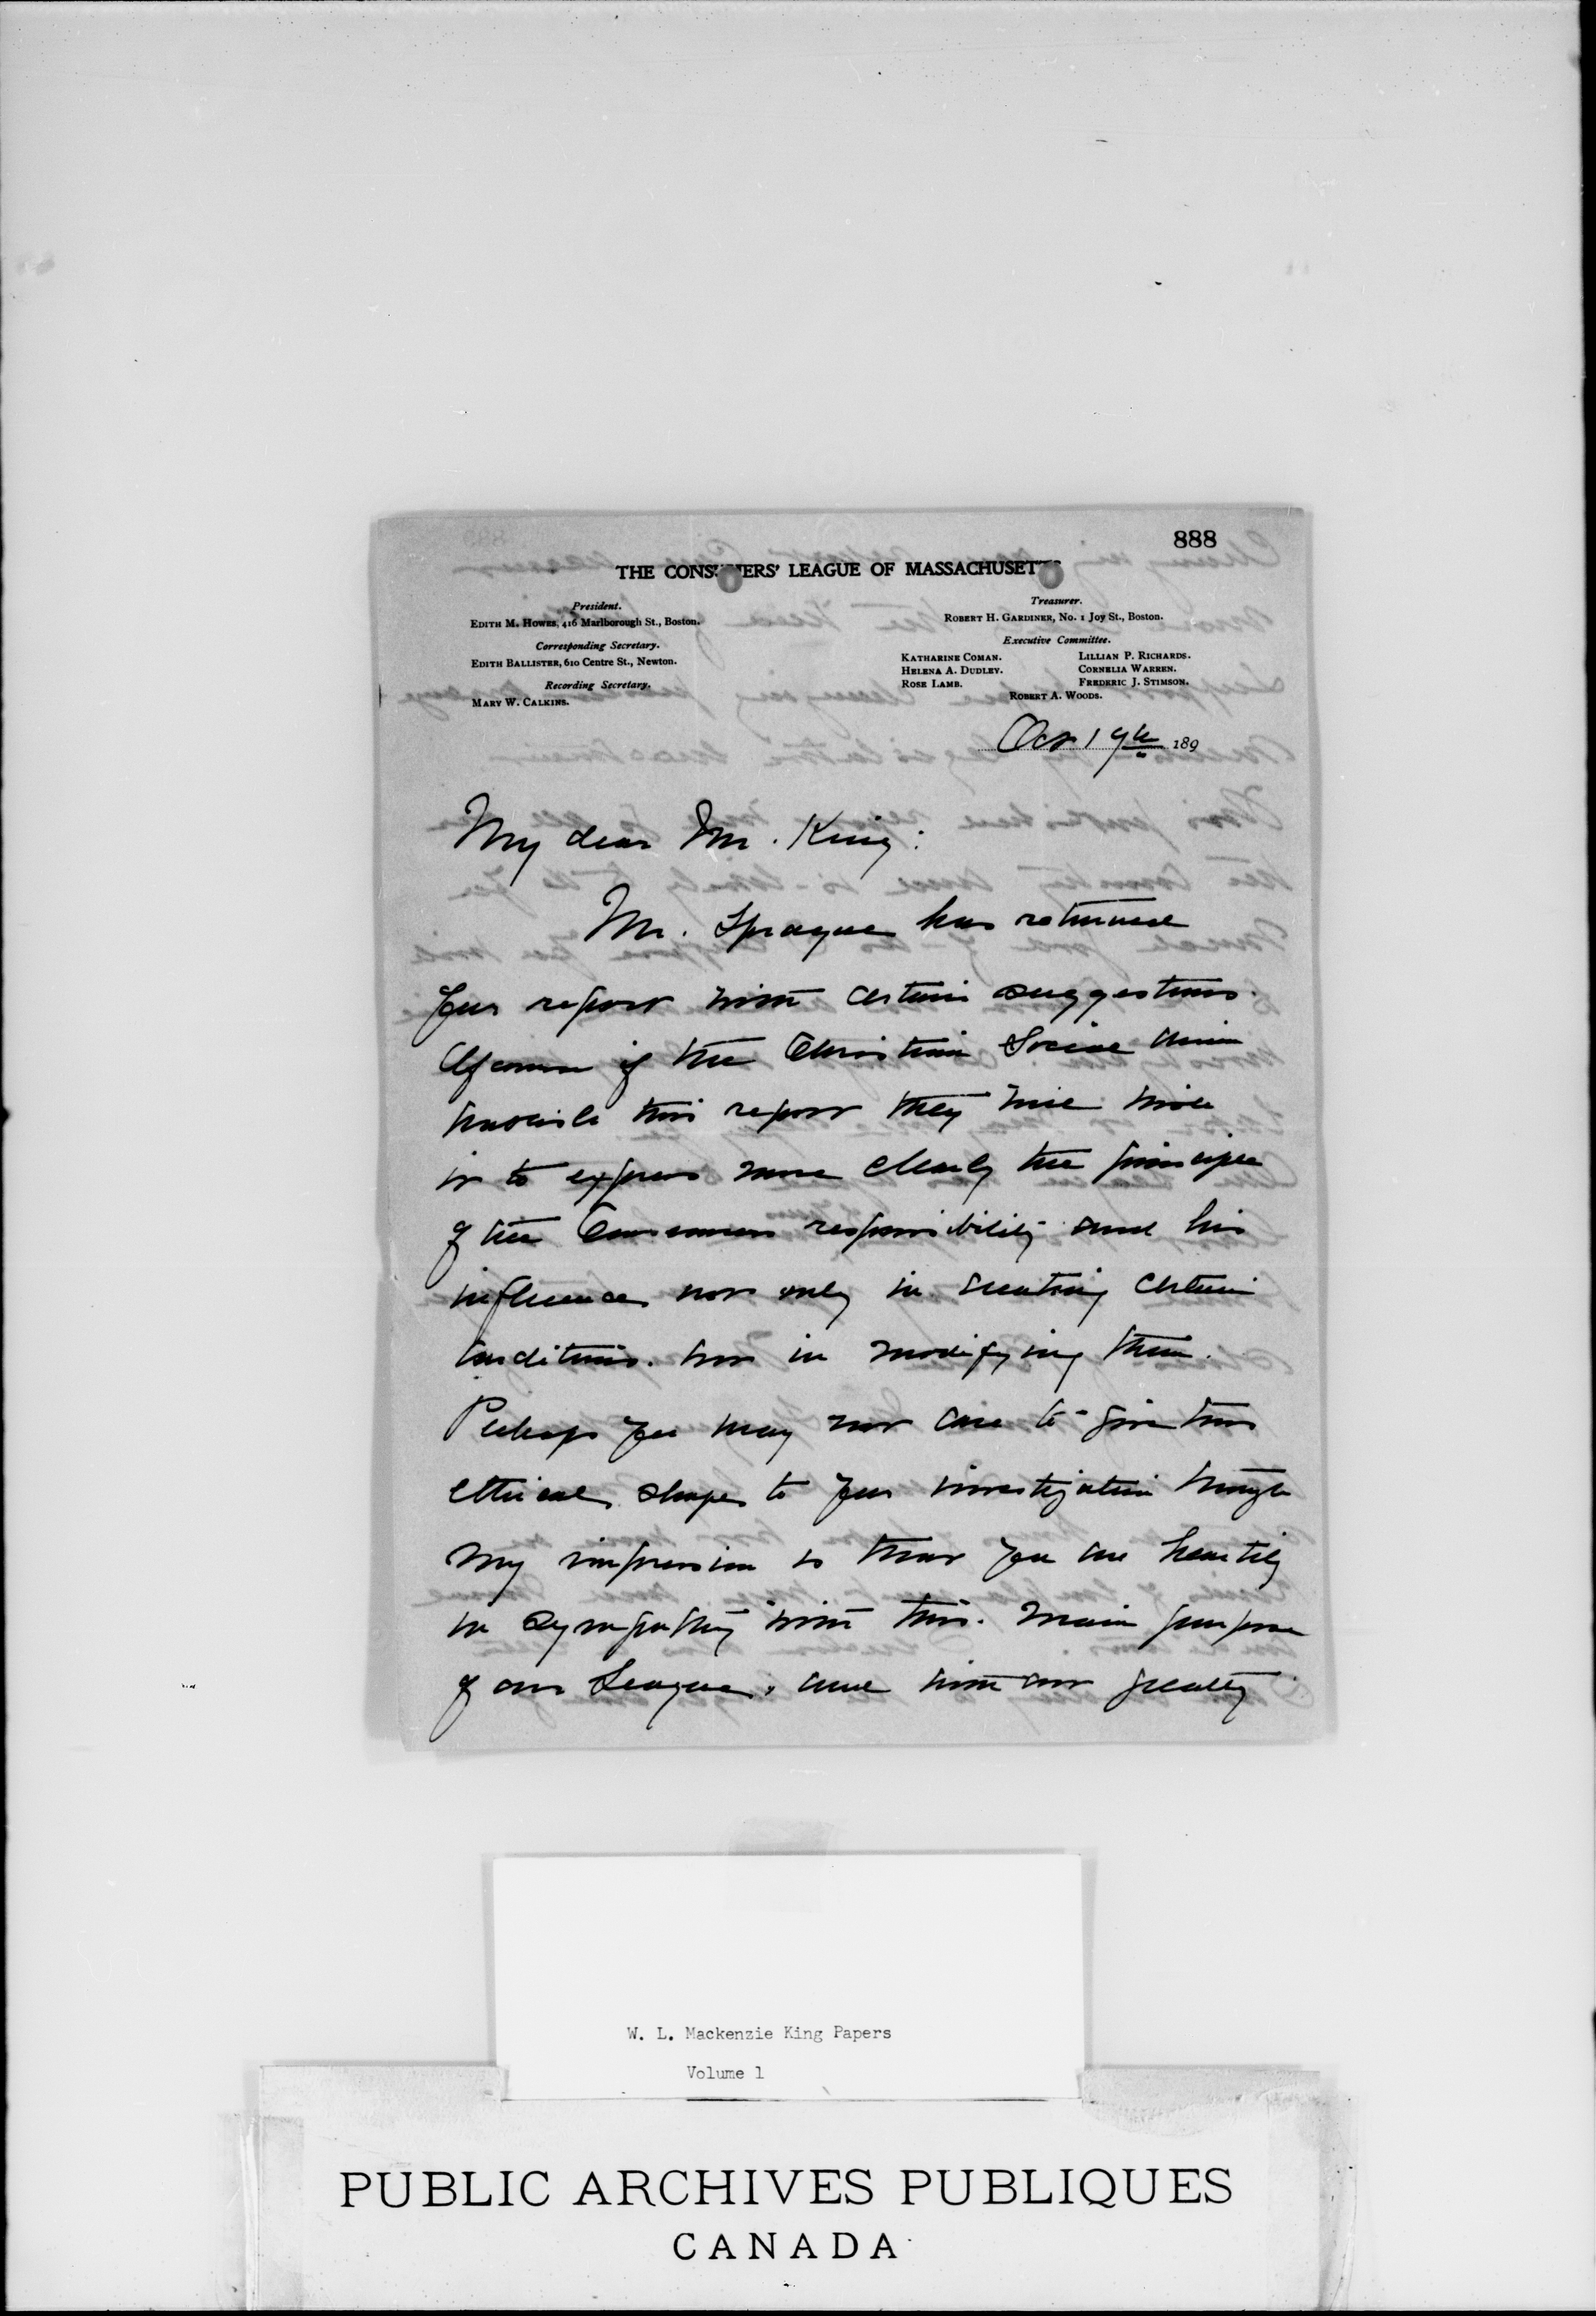 888
THE CONSUMERS' LEAGUE OF MASSACHUSETTS
President.
EDITH M. HOWES, 416 Marlborough St., Boston.
Corresponding Secretary.
EDITH BALLISTER, 610 Centre St., Newton.
Recording Secretary.
MARY W. CALKINS.
Treasurer.
ROBERT H. GARDINER, No. 1 Joy St., Boston.
Executive Committee.
KATHARINE COMAN. LILLIAN P. RICHARDS.
HELENA A. DUDLEY. CORNELIA WARREN.
ROSE LAMB. FREDERIC J. STIMSON.
ROBERT A. WOODS.
Oct 19th 189
My dear Mr. King:
Mr. Sprague has returned
your report with certain suggestions.
Of course if the Christian Social Union
publish this report they will wish
it to express more clearly the principle
of the Consumers responsibility and his
influence not only in creating certain
conditions but in modifying them.
Perhaps you may not care to give this
ethical shape to your investigation though
my impression is that you are heartily
in sympathy with this main purpose
of our League, and without greatly
W. L. Mackenzie King Papers
Volume 1
PUBLIC ARCHIVES PUBLIQUES
CANADA